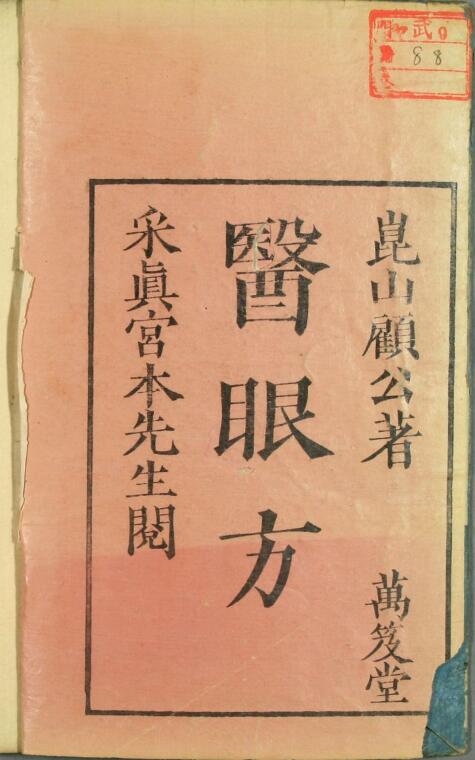 崑山顧公著
萬笈堂
醫眼方
采眞宮本先生閱
武
88